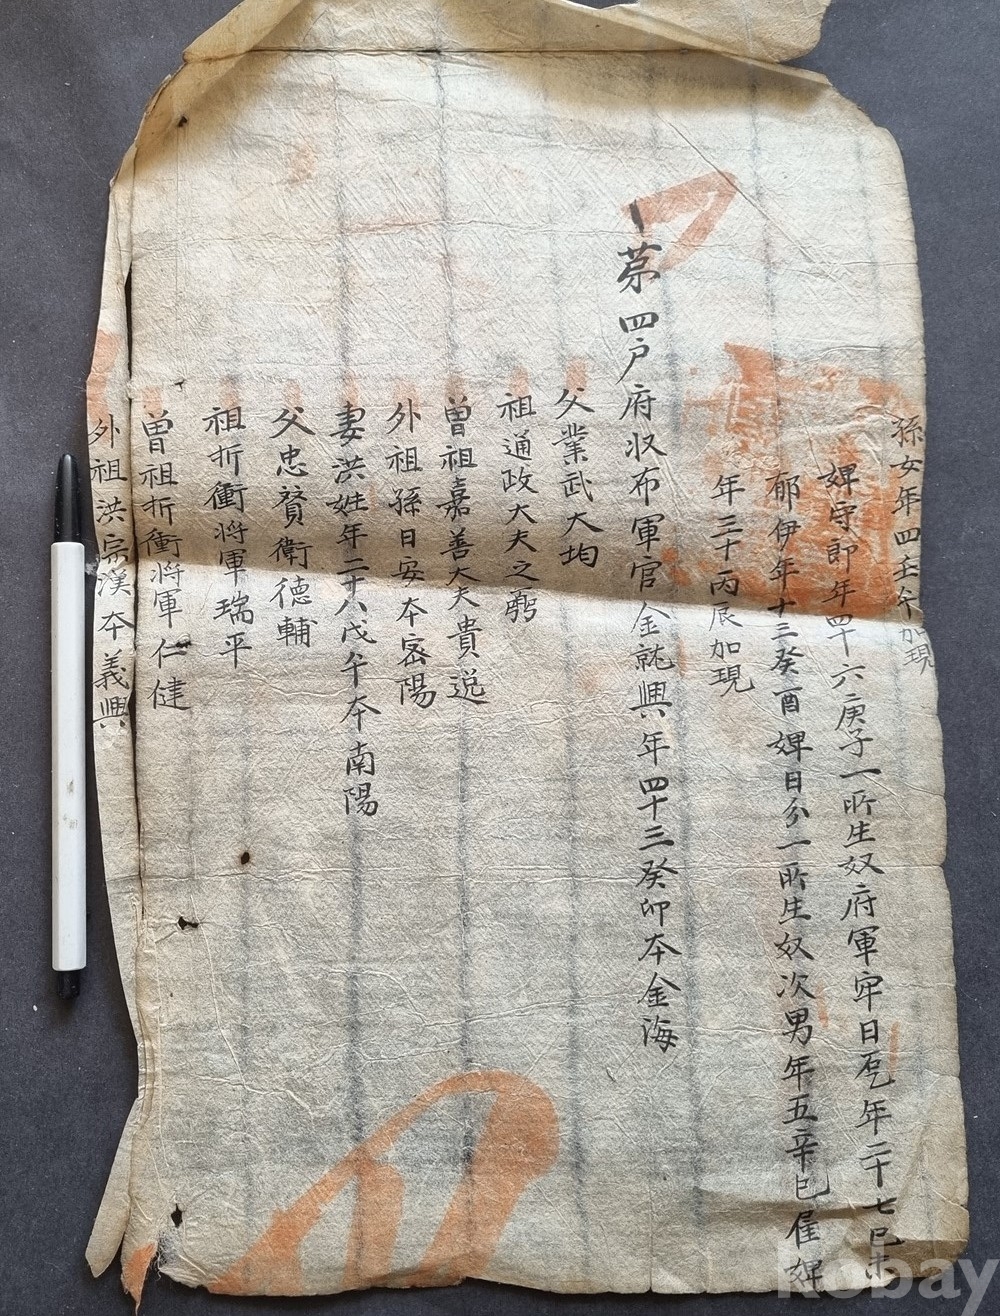 孫女年四壬午加現
婢守郎年四十六庚子一所生奴府軍牢日 年二十七己未
郁伊年十三癸酉婢日分一所生奴次男年五辛巳雇婢
年三十丙辰加現
第四戶府収布軍官金就興年四十三癸卯本金海
父業武大均
祖通政大夫之
曾祖嘉善大夫貴説
外祖孫日安本密陽
妻洪姓年二十八戊午本南陽
父忠賛衛德輔
祖折衝將軍瑞平
曾祖折衝將軍仁健
外祖洪宗漢本義興
Kobay